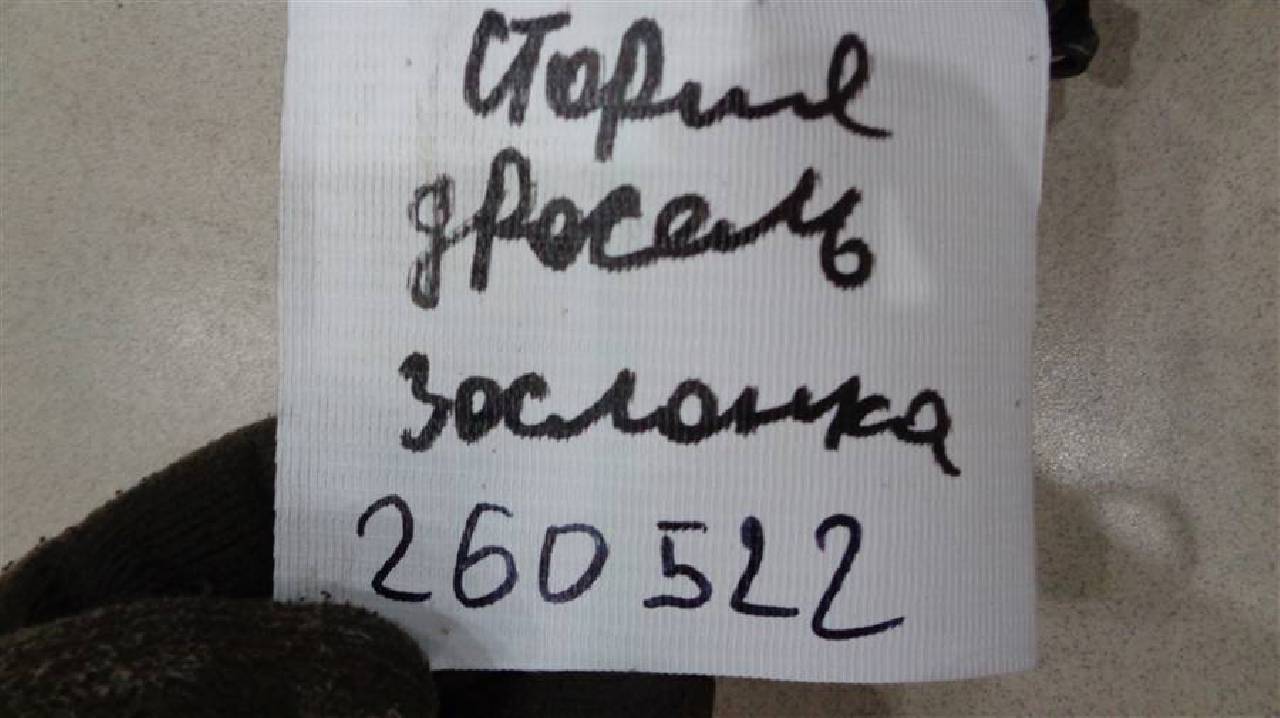 Сторис
дросель
заслонка
260522